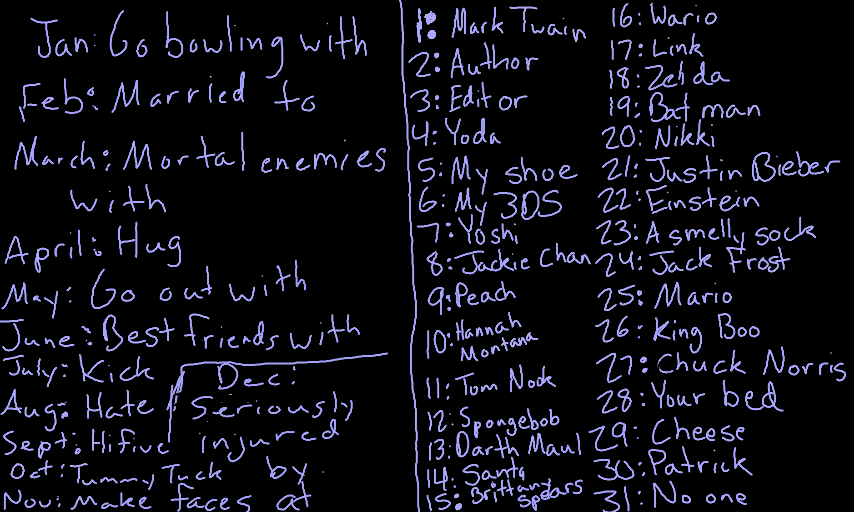 Jan: Go bowling with
Feb: Married to
March: Mortal enemies
with
April: Hug
May: Go out with
June: Best friends with
July: Kick
Aug: Hate
Sept: Hifive
Oct: Tummy Tuck
Nov: Make faces at
Dec:
Seriously
injured
by
1: Mark Twain
2: Author
3: Editor
4: Yoda
5: My shoe
6: My 3DS
7: Yoshi
8: Jackie Chan
9: Peach
10: Hannah
Montana
11: Tom Nook
12: Spongebob
13: Darth Maul
14: Santa
15: Brittany
Spears
16: Wario
17: Link
18: Zelda
19: Batman
20: Nikki
21: Justin Bieber
22: Einstein
23: A smelly sock
24: Jack Frost
25: Mario
26: King Boo
27: Chuck Norris
28: Your bed
29: Cheese
30: Patrick
31: No one